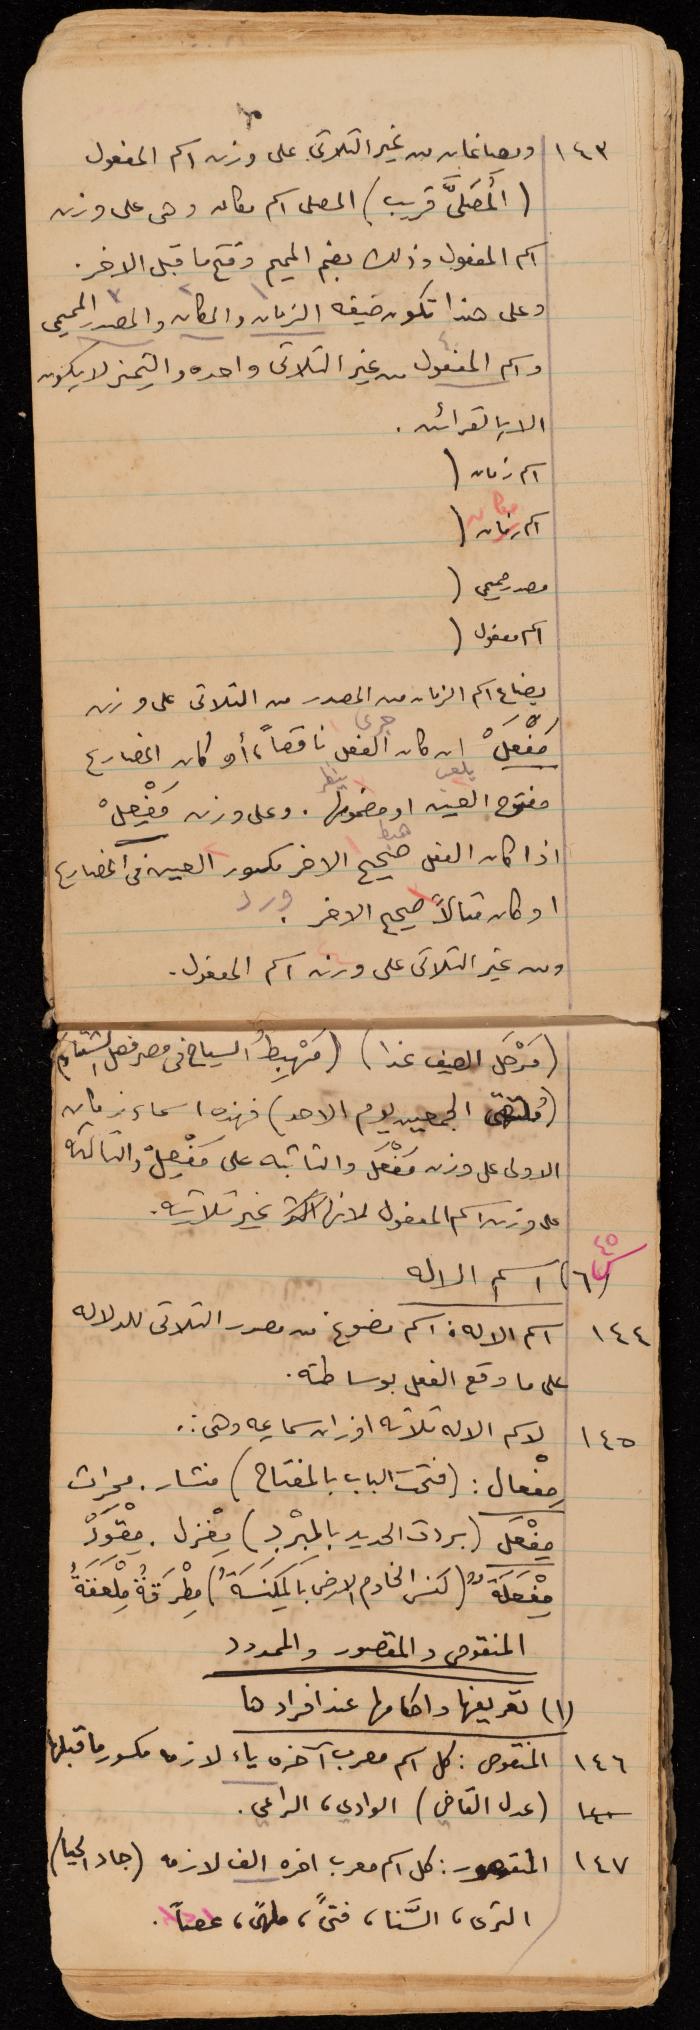 ١٤٣ ويصاغان من غير الثلاثي على وزن اسم المفعول
(المُصَلَّى قريب) المصلى اسم مكان وهي على وزن
اسم المفعول وذلك بضم الميم وفتح ما قبل الاخر.
وعلى هذا تكون صيغه الزمان والمكان والمصدر الميمي
واسم المفعول من غير الثلاثى واحده والتيمز لا يكون
الا بالقرائن.
اسم زمان (
اسم مكان (
مصدر ميمي (
اسم مفعول (
يصاغ اسم الزمان من المصدر من الثلاثى على وزن
جرى
مَفْعَلْ ان كان الفعل ناقصاً، أو كان المضارع
يلعب ينظر
مفتوح العين او مضمومها. وعلى وزن مَفْعِلْ
هبط
اذا كان الفعل صحيح الاخر مكسور العين فى المضارع
او كان مثالاً صحيح الاخر. ورد
ومن غير الثلاثى على وزن اسم المفعول.
(مَرْحَل الصيف غدا) (مَهْبِطُ السياح فى مصر فصل الشتاء)
(مُلتقى الجمعين يوم الاحد) فهذه اسماء زمان
الاولى على وزن مَفْعَل والثانيه على مَفْعِلْ والثالثه
على وزن اسم المفعول لانها غير ثلاثيه.
٤٥
(٦) اسم الاله
١٤٤ اسم الاله: اسم مصوغ من مصدر الثلاثى للدلاله
على ما وقع الفعل بوساطته.
١٤٥ لاسم الاله ثلاثه اوزان سماعيه وهى:.
مِفْعال: (فتحت الباب بالمفتاح) منشار. محراث
مِفْعَل (بردت الحديد بالمِبْرد) مِغْزل. مِقْوَدْ
مِفْعَلَة (كنس الخادم الارض بالمِكنَسَة) مِطْرَقةُ مِلْعَقَةُ
المنقوص والمقصور والممدود
(١) تعريفها واحكامها عند افرادها
١٤٦ المنقوص: كل اسم معرب آخره ياء لازمه مكسور ما قبلها
(عدل القاضي) الوادي، الراعي.
١٤٧ المقصور: كل اسم معرب اخره الف لازمه (جاد الحيا)
الثرى، السَّنا، فتىً، ملهىً، عصاً.